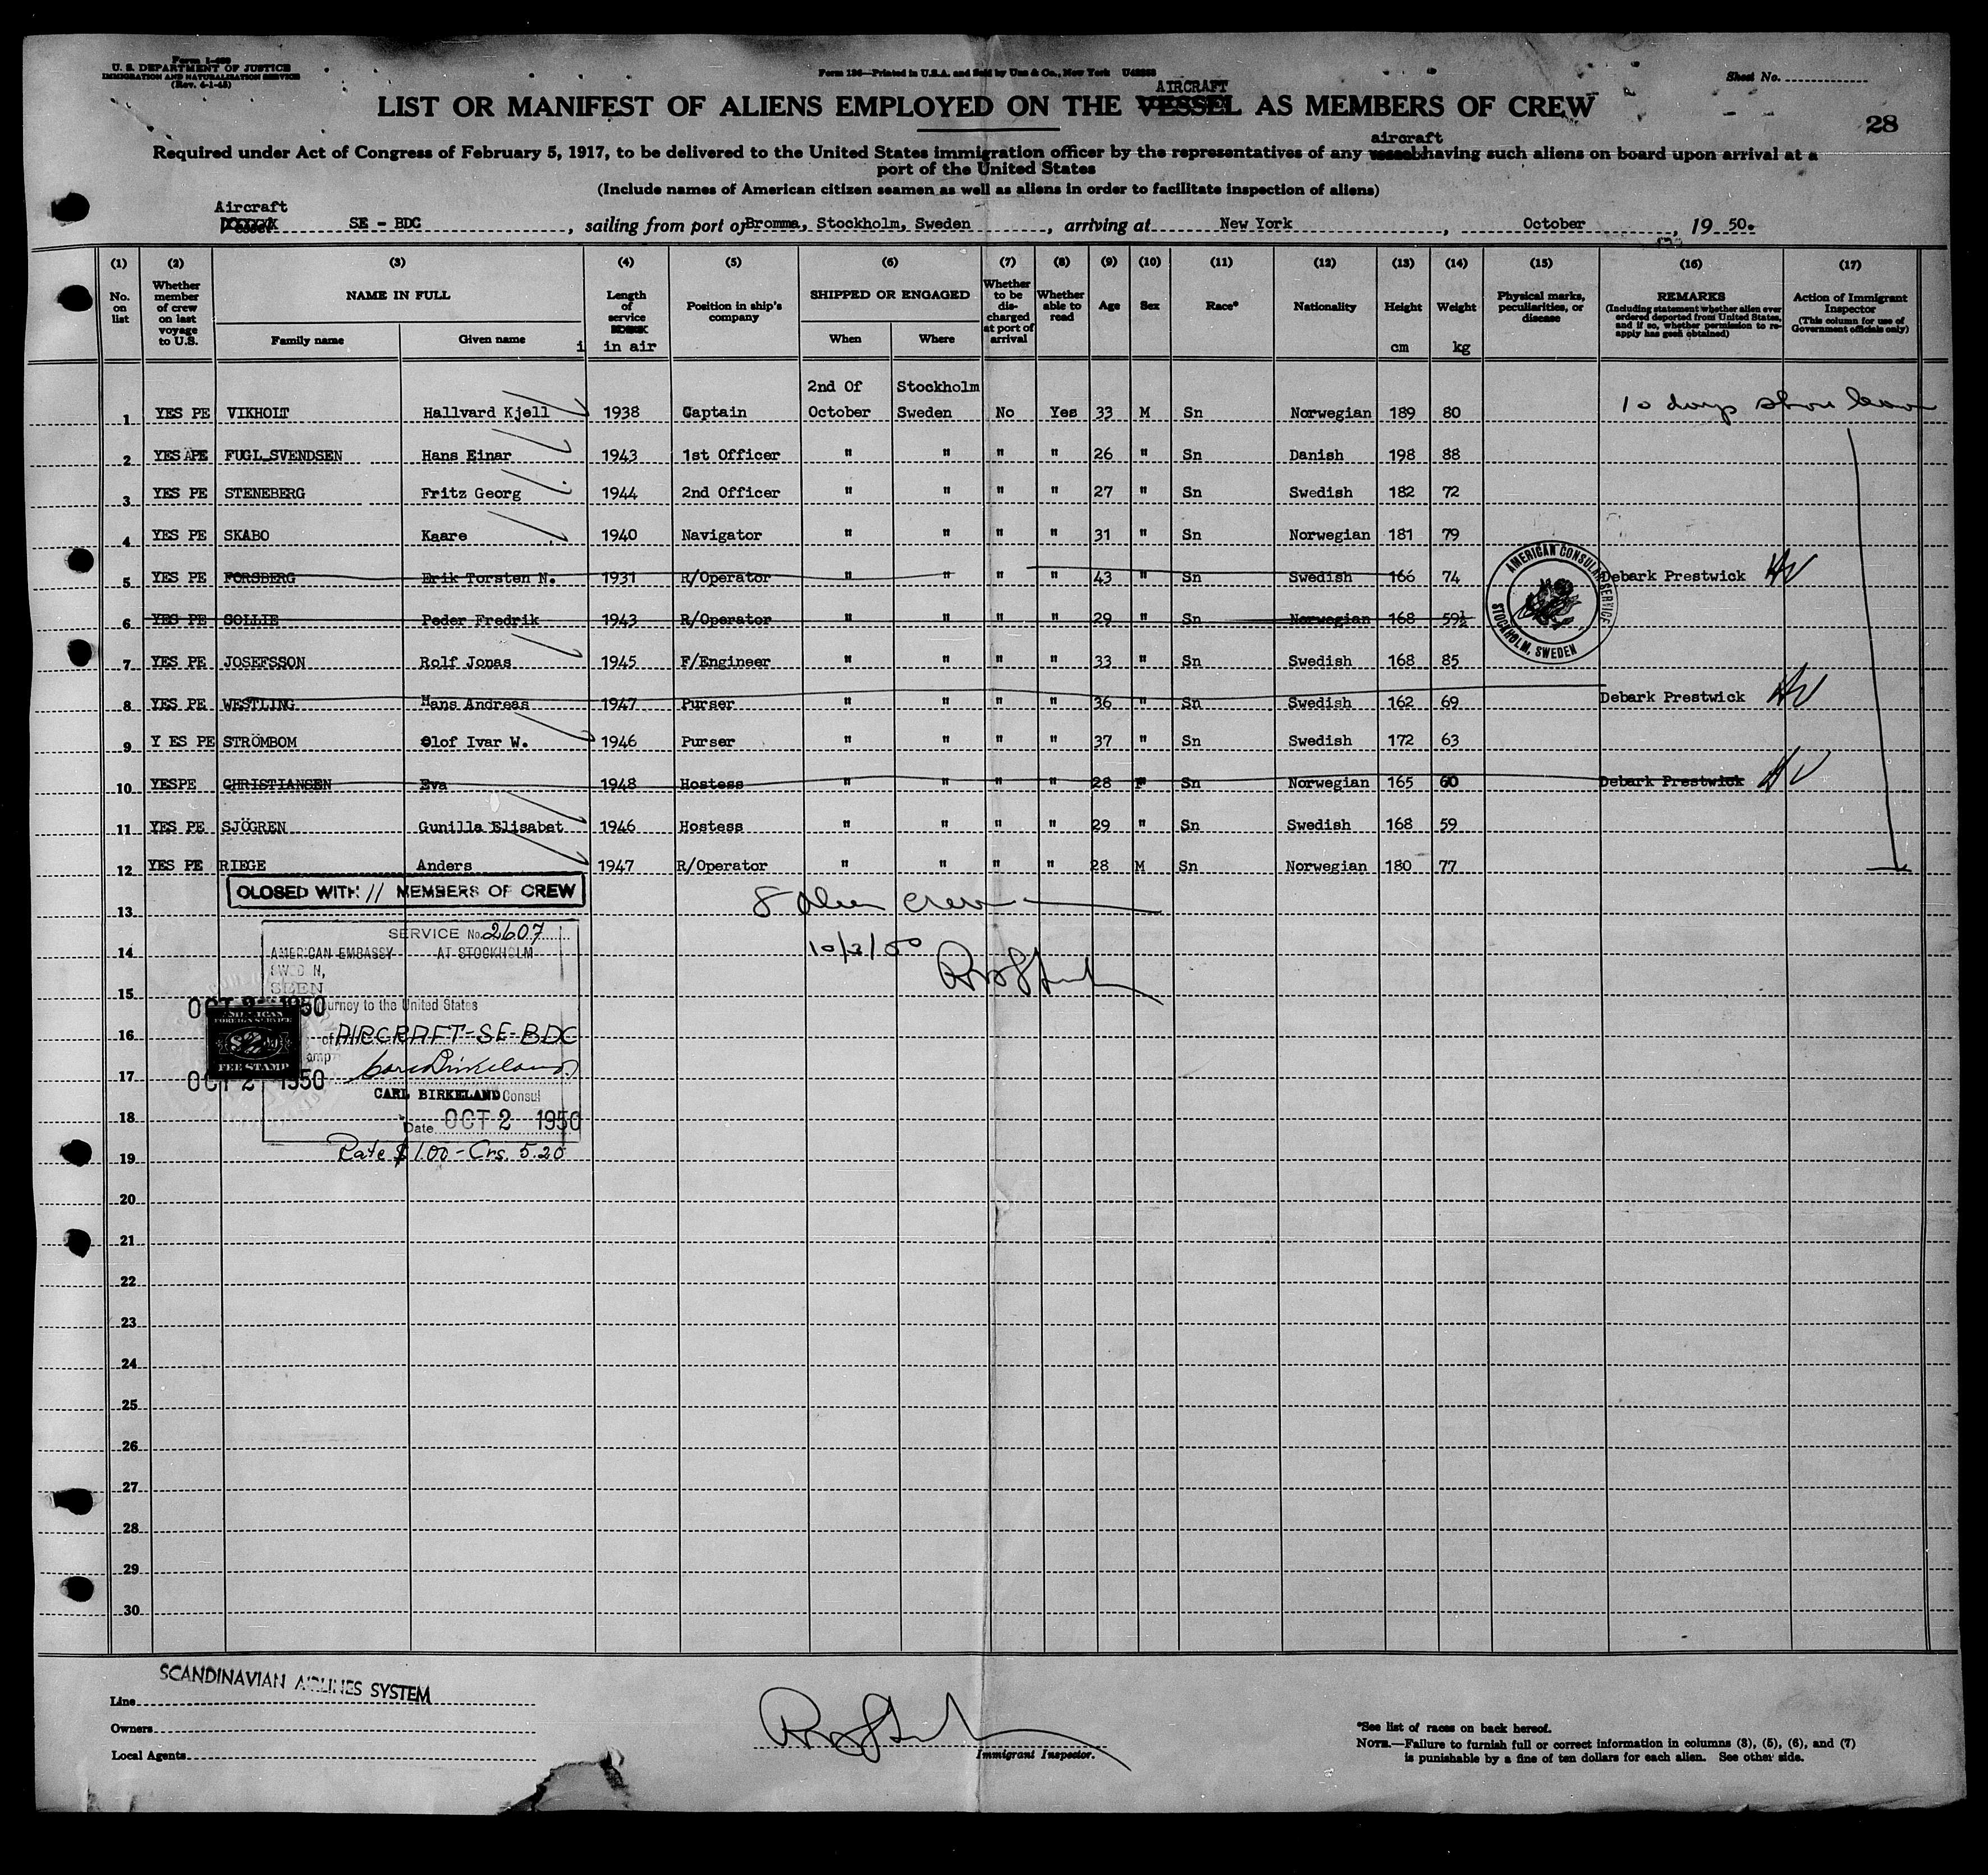 Form I-480
U. S. DEPARTMENT OF JUSTICE
IMMIGRATION AND NATURALIZATION SERVICE
(Rev. 4-1-45)
Form 136—Printed in U.S.A. and Sold by Unz & Co., New York
Sheet No.
AIRCRAFT
LIST OR MANIFEST OF ALIENS EMPLOYED ON THE VESSEL AS MEMBERS OF CREW
28
aircraft
Required under Act of Congress of February 5, 1917, to be delivered to the United States immigration officer by the representatives of any vessel having such aliens on board upon arrival at a
port of the United States
(Include names of American citizen seamen as well as aliens in order to facilitate inspection of aliens)
Aircraft
SE - BDC, sailing from port of Bromma, Stockholm, Sweden, arriving at New York, October, 19 50.
(1) (2) (3) (4) (5) (6) (7) (8) (9) (10) (11) (12) (13) (14) (15) (16) (17)
No. on list
Whether member of crew on last voyage to U.S.
NAME IN FULL
Family name
Given name
Length of service
in air
Position in ship's company
SHIPPED OR ENGAGED
When
Where
Whether to be discharged at port of arrival
Whether able to read
Age
Sex
Race*
Nationality
Height
cm
Weight
kg
Physical marks, peculiarities, or disease
REMARKS
(Including statement whether alien ever ordered deported from United States, and if so, whether permission to re-apply has been obtained)
Action of Immigrant Inspector
(This column for use of Government officials only)
2nd Of Stockholm
1 YES PE VIKHOLT Hallvard Kjell 1938 Captain October Sweden No Yes 33 M Sn Norwegian 189 80 10 days shore leave
2 YES APE FUGL_SVENDSEN Hans Einar 1943 1st Officer " " " " 26 " Sn Danish 198 88
3 YES PE STENEBERG Fritz Georg 1944 2nd Officer " " " " 27 " Sn Swedish 182 72
4 YES PE SKABO Kaare 1940 Navigator " " " " 31 " Sn Norwegian 181 79
5 YES PE FORSBERG Erik Torsten N. 1931 R/Operator " " " " 43 " Sn Swedish 166 74 Debark Prestwick
6 YES PE SOLLIE Peder Fredrik 1943 R/Operator " " " " 29 " Sn Norwegian 168 59½
7 YES PE JOSEFSSON Rolf Jonas 1945 F/Engineer " " " " 33 " Sn Swedish 168 85
8 YES PE WESTLING Hans Andreas 1947 Purser " " " " 36 " Sn Swedish 162 69 Debark Prestwick
9 Y ES PE STRÖMBOM Olof Ivar W. 1946 Purser " " " " 37 " Sn Swedish 172 63
10 YESPE CHRISTIANSEN Eva 1948 Hostess " " " " 28 F Sn Norwegian 165 60 Debark Prestwick
11 YES PE SJÖGREN Gunilla Elisabet 1946 Hostess " " " " 29 " Sn Swedish 168 59
12 YES PE RIEGE Anders 1947 R/Operator " " " " 28 M Sn Norwegian 180 77
AMERICAN CONSULAR SERVICE
STOCKHOLM, SWEDEN
CLOSED WITH 11 MEMBERS OF CREW
8 alien crew
13
SERVICE No. 2607
14
AMERICAN EMBASSY AT STOCKHOLM
10/3/50
SWEDEN,
SEEN
15
OCT 2 1950
journey to the United States
16
AMERICAN
FOREIGN SERVICE
$2
FEE STAMP
of AIRCRAFT-SE-BDC
17
OCT 2 1950
Carl Birkeland
CARL BIRKELAND Consul
18
Date OCT 2 1950
19
Rate $1.00 - Crs. 5.20
20
21
22
23
24
25
26
27
28
29
30
SCANDINAVIAN AIRLINES SYSTEM
Line
Owners
Local Agents
Immigrant Inspector.
*See list of races on back hereof.
NOTE.—Failure to furnish full or correct information in columns (3), (5), (6), and (7)
is punishable by a fine of ten dollars for each alien. See other side.